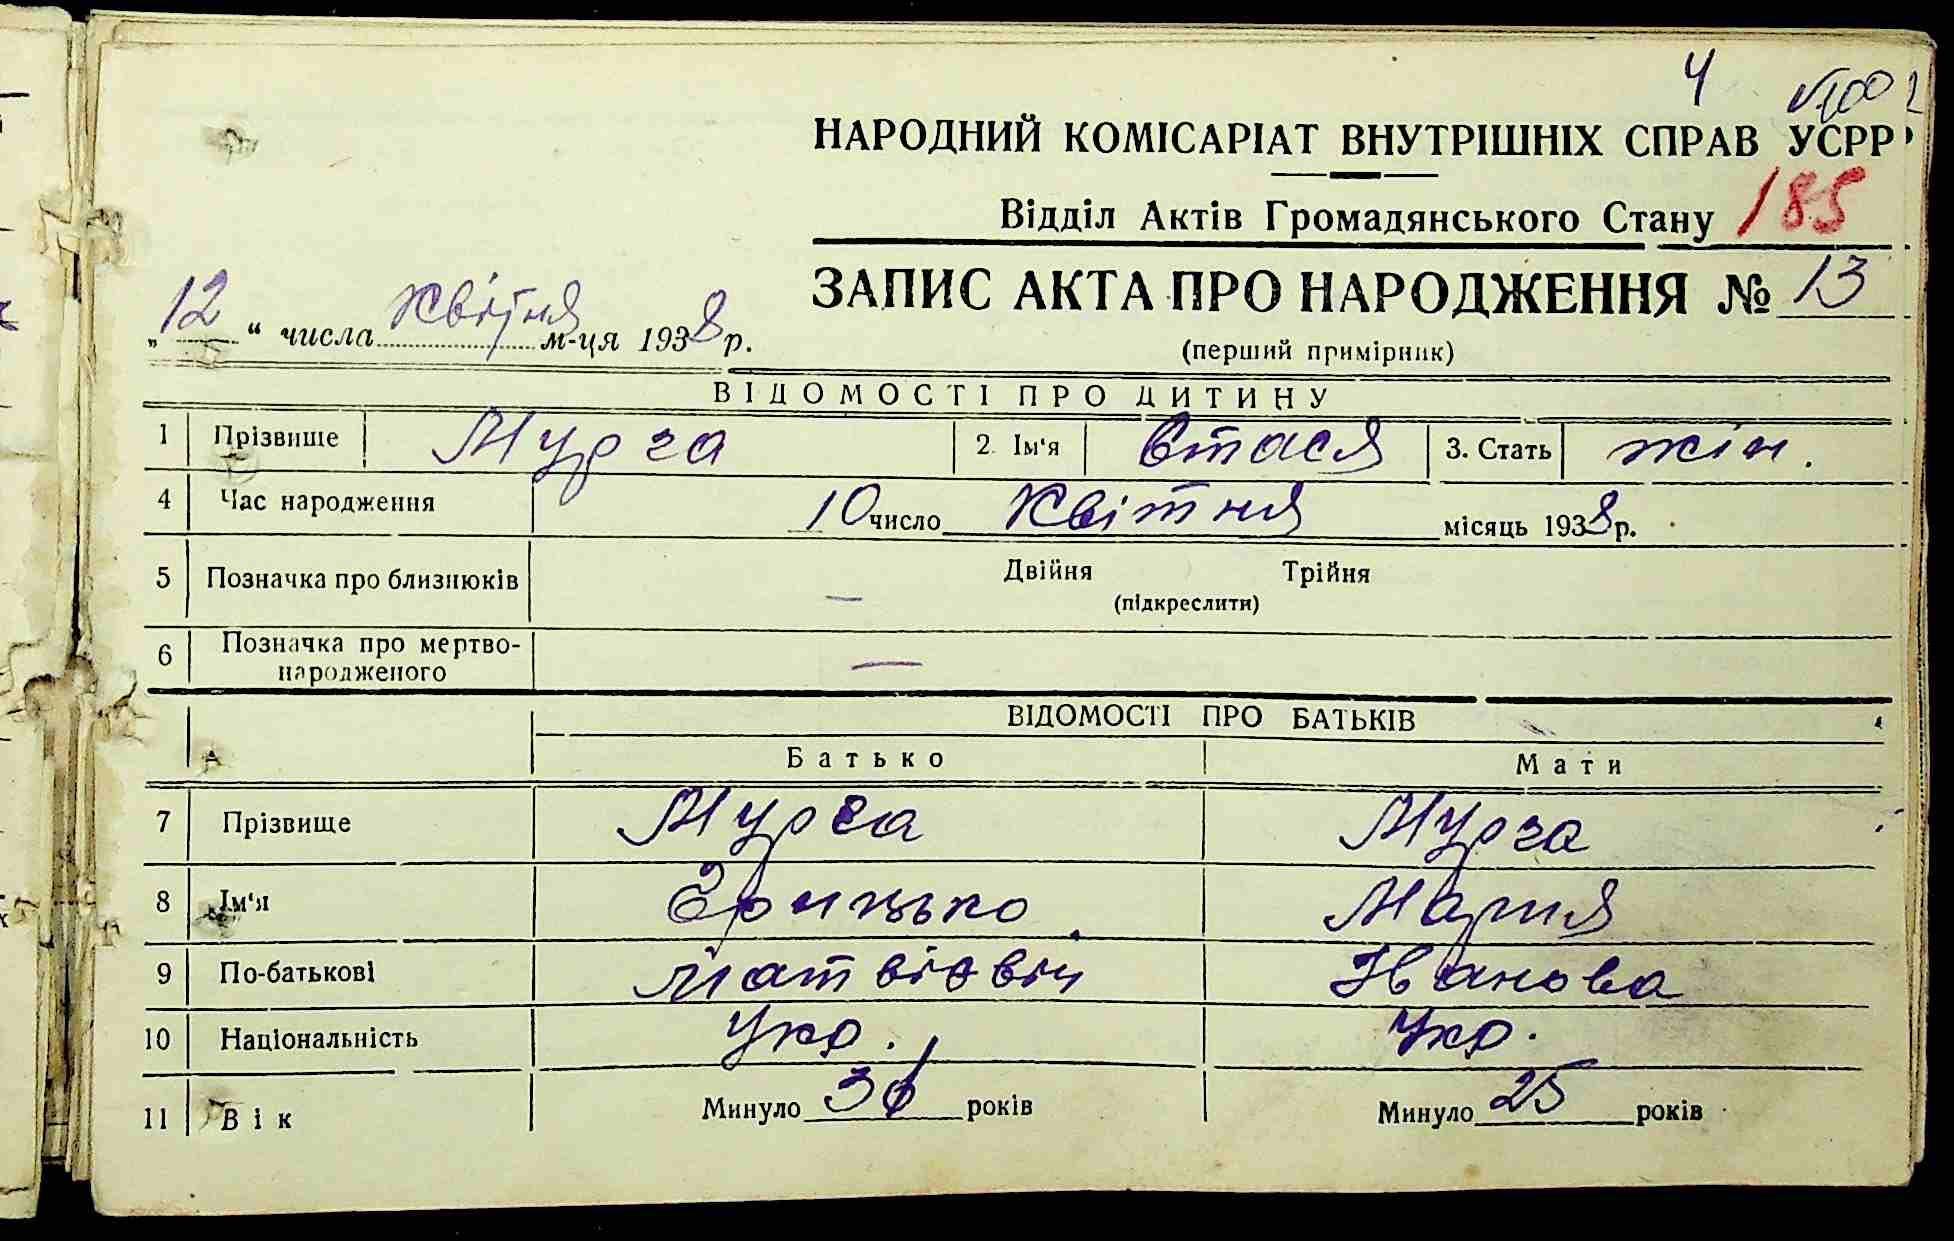 4
НАРОДНИЙ КОМІСАРІАТ ВНУТРІШНІХ СПРАВ УСРР
Відділ Актів Громадянського Стану 185
ЗАПИС АКТА ПРО НАРОДЖЕННЯ № 13
„ 12 “ числа квітня м-ця 1938 р.
(перший примірник)
ВІДОМОСТІ ПРО ДИТИНУ
1 Прізвище Мурга 2. Ім'я Стася 3. Стать жін.
4 Час народження 10 число квітня місяць 1938 р.
5 Позначка про близнюків — Двійня Трійня
(підкреслити)
6 Позначка про мертво-
народженого —
ВІДОМОСТІ ПРО БАТЬКІВ
А Батько Мати
7 Прізвище Мурга Мурга
8 Ім'я Грицько Мария
9 По-батькові Матвієвич Іванова
10 Національність Укр. Укр.
11 Вік Минуло років Минуло 25 років